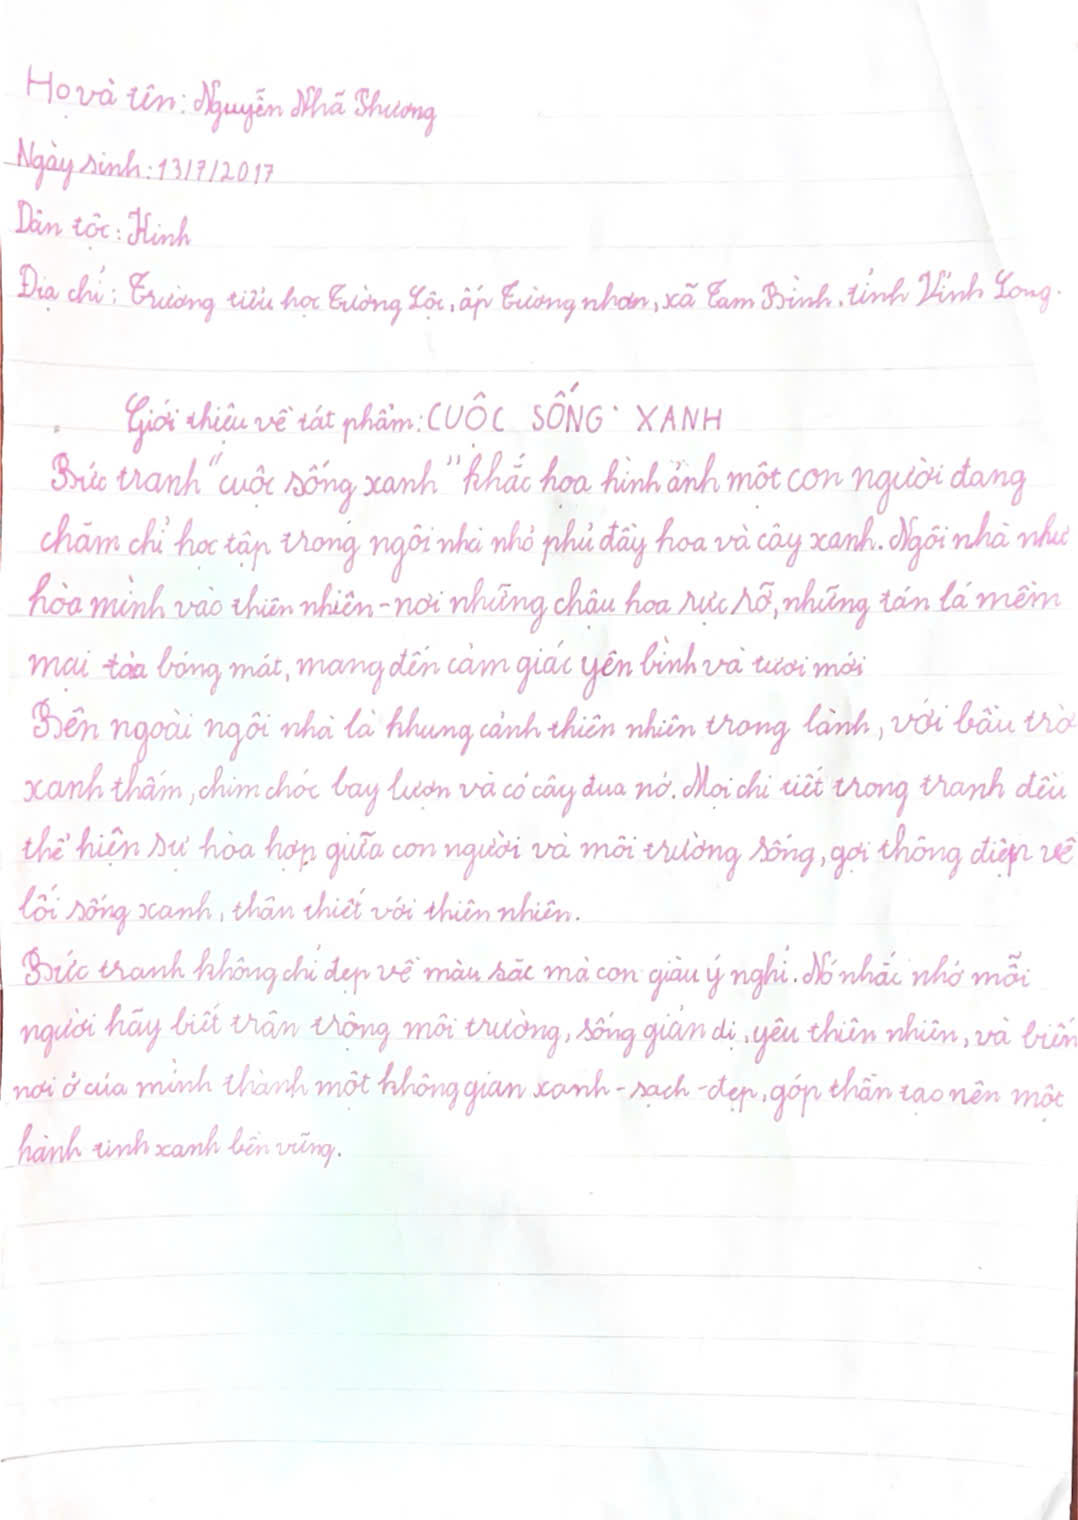 Họ và tên: Nguyễn Nhã Phương
Ngày sinh: 13/7/2017
Dân tộc: Kinh
Địa chỉ: Trường tiểu học Tường Lộc, ấp Tường nhơn, xã Tam Bình, tỉnh Vĩnh Long.
Giới thiệu về tát phẩm: CUỘC SỐNG XANH
Bức tranh "cuộc sống xanh" khắc họa hình ảnh một con người đang
chăm chỉ học tập trong ngôi nhà nhỏ phủ đầy hoa và cây xanh. Ngôi nhà như
hòa mình vào thiên nhiên - nơi những chậu hoa rực rỡ, những tán lá mềm
mại tỏa bóng mát, mang đến cảm giác yên bình và tươi mới
Bên ngoài ngôi nhà là khung cảnh thiên nhiên trong lành, với bầu trờ
xanh thắm, chim chóc bay lượn và cỏ cây đua nở. Mọi chi tiết trong tranh đều
thể hiện sự hòa hợp giữa con người và môi trường sống, gợi thông điệp về
lối sống xanh, thân thiết với thiên nhiên.
Bức tranh không chỉ đẹp về màu sắc mà con giàu ý nghĩ. Nó nhắc nhở mỗi
người hãy biết trân trộng môi trường, sống giản dị, yêu thiên nhiên, và biến
nơi ở của mình thành một không gian xanh - sạch - đẹp, góp thần tạo nên một
hành tinh xanh bền vững.